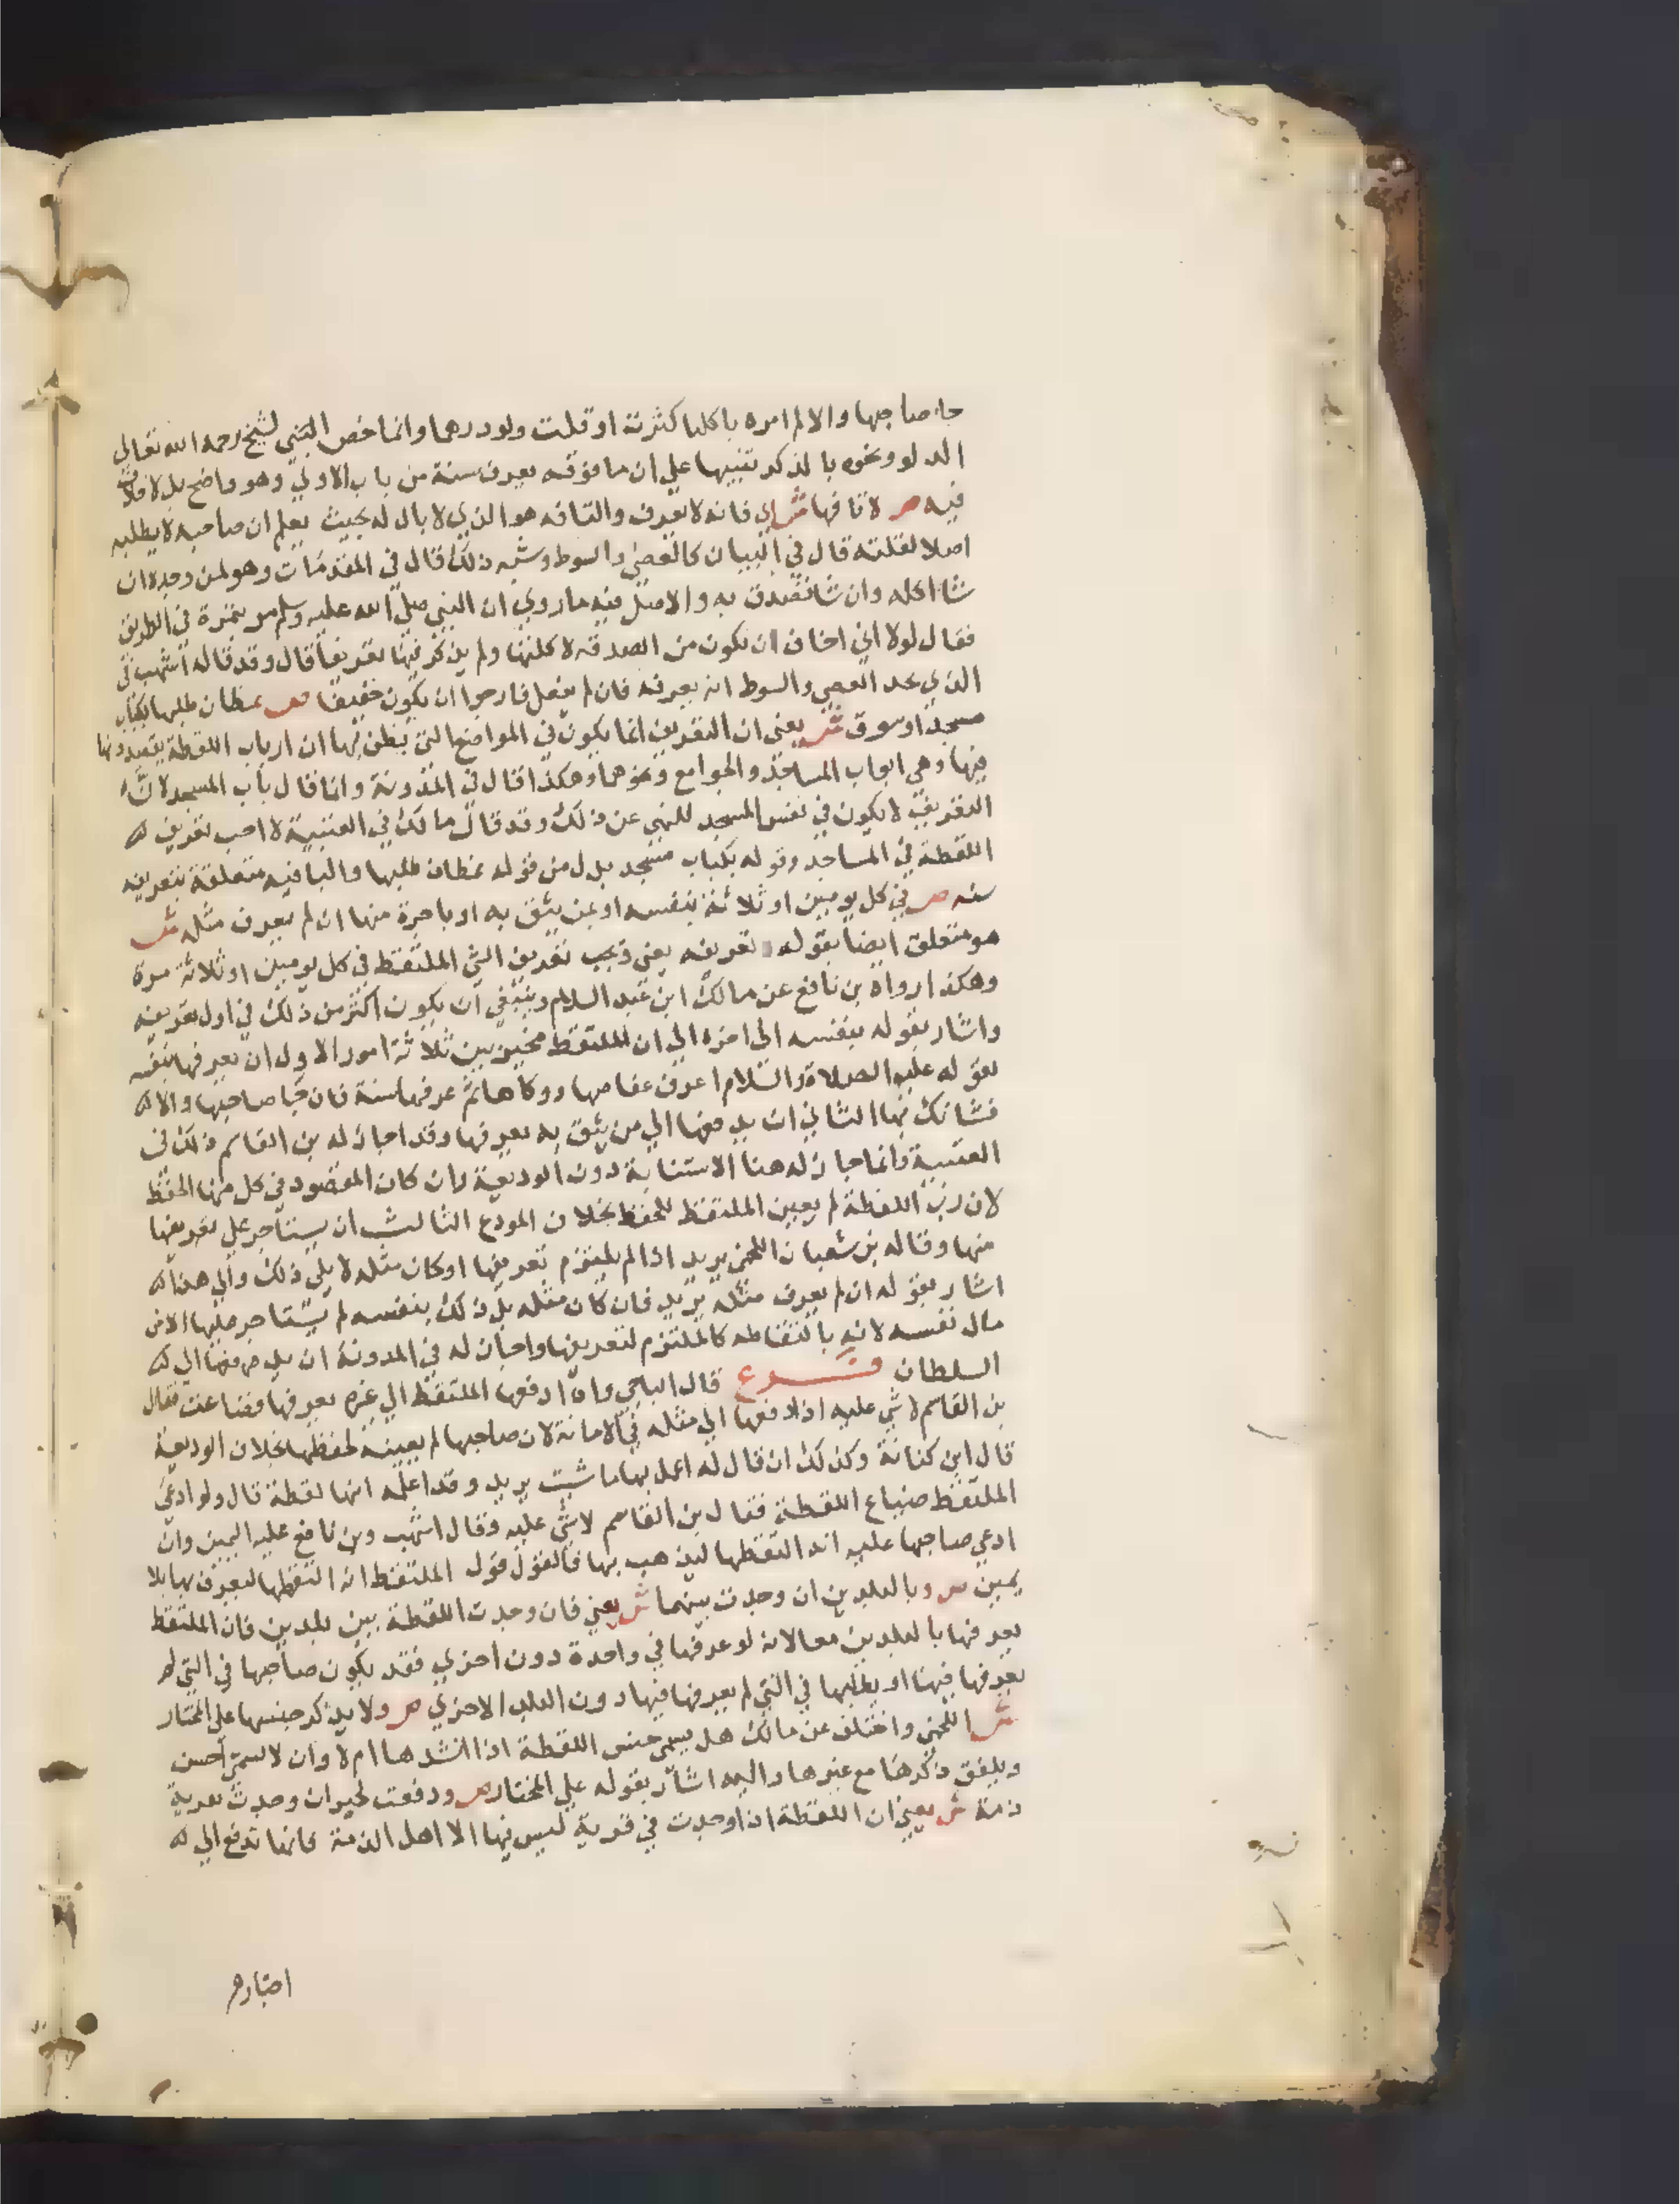 جا صاحبها والا لم امره باكلها كثرت او قلت ولو درهما وانما خص الشيخ رحمه الله تعالى
الدلو ونحوه بالذكر تنبيها علي ان ما فوقه يعرف سنة من باب الاولي وهو واضح بل لا خلاف
فيه ص لا تافها ش اي فانه لا يعرف والتافه هو الذي لا بال له بحيث يعلم ان صاحبه لا يطلبه
اصلا لقلته قال في البيان كالعصي والسوط وشبه ذلك قال في المقدمات وهو لمن وجده ان
شا اكله وان شا تصدق به والاصل فيه ما روي ان النبي صلي الله عليه وسلم مر بتمرة في الطريق
فقال لولا اني اخاف ان تكون من الصدقة لاكلتها ولم يذكر فيها تعريفا قال وقد قاله اشهب في
الذي يجد العصي والسوط انه يعرفه فان لم يفعل فارجوا ان يكون خفيفا ص بمظان طلبها بكباب
مسجد او سوق ش يعني ان التعريف انما يكون في المواضع التي يظن بها ان ارباب اللقطة يقصدونها
فيها وهي ابواب المساجد والجوامع ونحوها وهكذا قال في المدونة وانما قال باب المسجد لان
التعريف لا يكون في نفس المسجد للنهي عن ذلك وقد قال مالك في العتبية لا احب تعريف
اللقطة في المساجد وقوله بكباب مسجد بدل من قوله بمظان طلبها والبا فيه متعلقة بتعريفه
سنه ص في كل يومين او ثلاثة بنفسه او بمن يثق به او باجرة منها ان لم يعرف مثله ش
هو متعلق ايضا بقوله تعريفه يعني ويجب تعريف الشي الملتقط في كل يومين او ثلاثة مرة
وهكذا رواه بن نافع عن مالك ابن عبد السلام وينبغي ان يكون اكثر من ذلك في اول تعريفه
واشار بقوله بنفسه الي اخره الي ان الملتقط مخير بين ثلاثة امور الاول ان يعرفها بنفسه
لقوله عليه الصلاة والسلام اعرف عفاصها ووكاها ثم عرفها سنة فان جا صاحبها والا
فشانك بها الثاني ان يدفعها الي من يثق به يعرفها وقد اجاز له بن القاسم ذلك في
العتبية وانما جاز له هنا الاستنابة دون الوديعة وان كان المقصود في كل منها الحفظ
لان رب اللقطة لم يعين الملتقط للحفظ بخلاف المودع الثالث ان يستاجر علي تعريفها
منها وقاله بن شعبان اللخمي يريد اذا لم يلتزم تعريفها او كان مثله لا يلي ذلك والي هذا
اشار بقوله ان لم يعرف مثله يريد فان كان مثله يلي ذلك بنفسه لم يستاجر عليها الا من
مال نفسه لانه بالتقاطه كالملتزم لتعريفها واجاز له في المدونة ان يدفعها الي
السلطان فرع قال الباجي واذا دفعها الملتقط الي غيره يعرفها فضاعت فقال
بن القاسم لا شي عليه اذا دفعها الي مثله في الامانة لان صاحبها لم يعينه لحفظها بخلاف الوديعة
قال ابن كنانة وكذلك ان قال له اعمل بها ما شيت يريد وقد اعلمه انها لقطة قال ولو ادعي
الملتقط ضياع اللقطة فقال بن القاسم لا شي عليه وقال اشهب وبن نافع عليه اليمين وان
ادعي صاحبها عليه انه التقطها ليذهب بها فالقول قول الملتقط انه التقطها ليعرف بها بلا
يمين ص وبالبلدين ان وجدت بينهما ش يعني فان وجدت اللقطة بين بلدين فان الملتقط
يعرفها بالبلدين معا لانه لو عرفها في واحدة دون اخري فقد يكون صاحبها في التي لم
يعرفها فيها او يطلبها في التي لم يعرفها فيها دون البلد الاخري ص ولا يذكر جنسها علي المختار
ش اللخمي واختلف عن مالك هل يسمي جنس اللقطة اذا انشدها ام لا وان لا يسمي احسن
ويلفق ذكرها مع غيرها واليه اشار بقوله علي المختار ص ودفعت لحبر ان وجدت بقرية
ذمة ش يعني ان اللقطة اذا وجدت في قرية ليس فيها الا اهل الذمة فانها تدفع الي
احبارهم